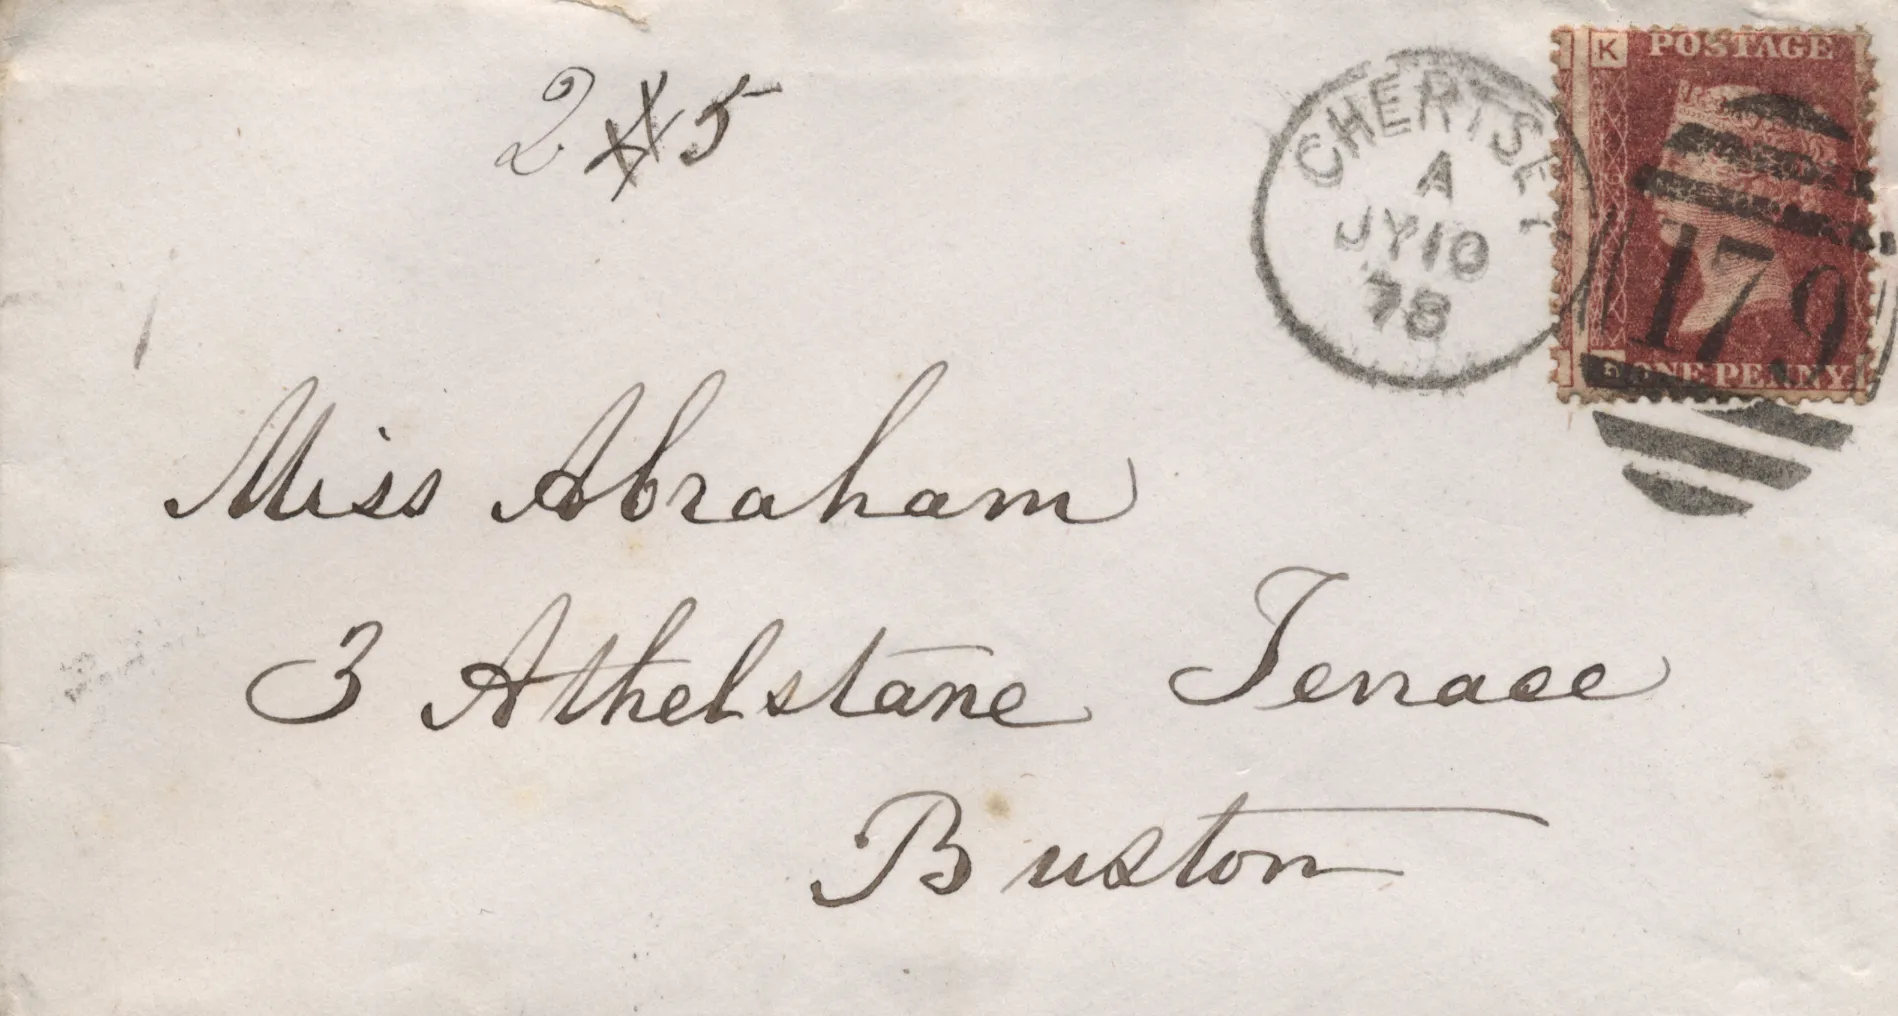 2 5
CHERTSEY
A
JY 10
78
K POSTAGE
179
ONE PENNY
Miss Abraham
3 Athelstane Terrace
Buxton